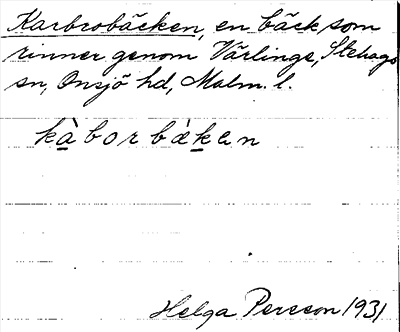 Karbrobäcken, en bäck som
rinner genom Vårlinge, Stehags
sn, Onsjö hd, Malm. l.
kàborbä̀ken
Helga Persson 1931